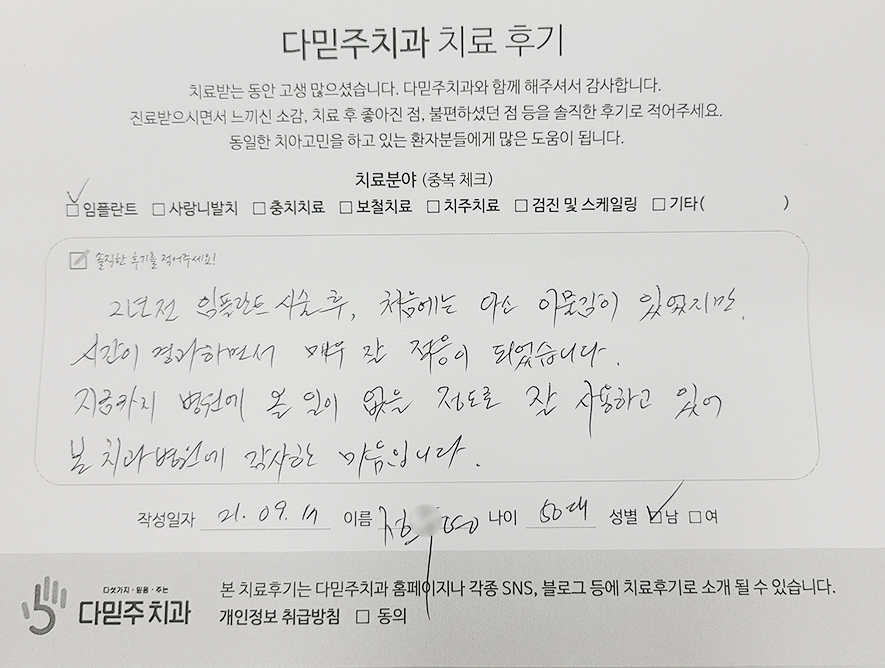 다믿주치과 치료 후기
치료받는 동안 고생 많으셨습니다. 다믿주치과와 함께 해주셔서 감사합니다.
진료받으시면서 느끼신 소감, 치료 후 좋아진 점, 불편하셨던 점 등을 솔직한 후기로 적어주세요.
동일한 치아고민을 하고 있는 환자분들에게 많은 도움이 됩니다.
치료분야 (중복 체크)
☑ 임플란트 □ 사랑니발치 □ 충치치료 □ 보철치료 □ 치주치료 □ 검진 및 스케일링 □ 기타( )
솔직한 후기를 적어주세요!
2년전 임플란트 시술 후, 처음에는 다소 이물감이 있었지만,
시간이 경과하면서 매우 잘 적응이 되었습니다.
지금까지 병원에 올 일이 없을 정도로 잘 사용하고 있어
본 치과병원에 감사하는 마음입니다.
작성일자 21. 09. 이름 나이 50대 성별 ☑남 □여
다섯가지·믿음·주는
다믿주치과
본 치료후기는 다믿주치과 홈페이지나 각종 SNS, 블로그 등에 치료후기로 소개 될 수 있습니다.
개인정보 취급방침 □ 동의